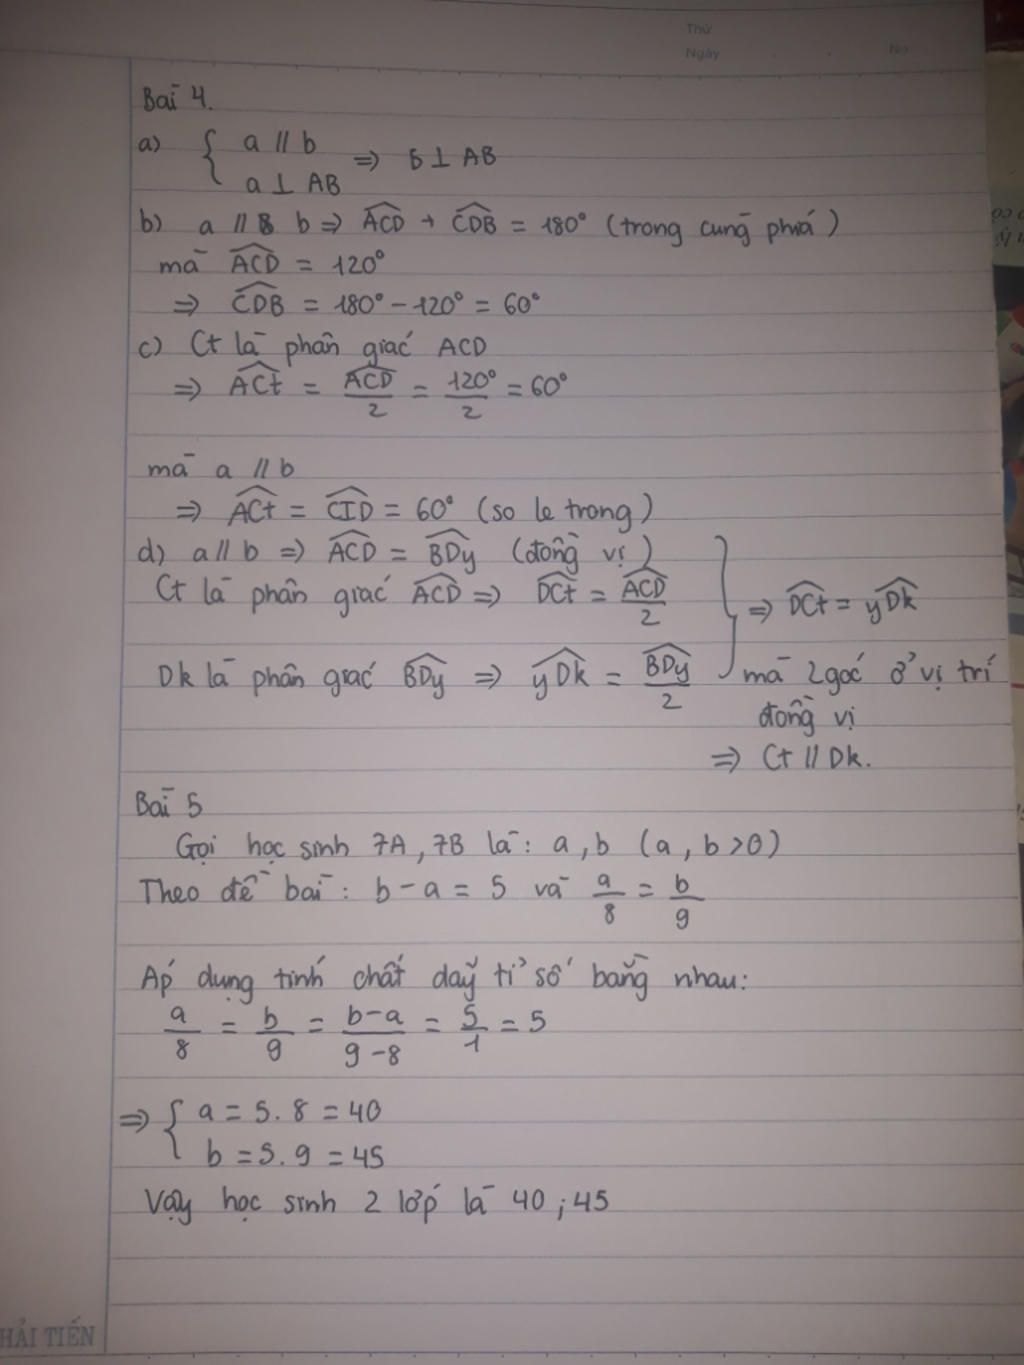 Thứ
Ngày . . No
Bài 4.
a) { a // b
a ⊥ AB ⇒ b ⊥ AB
b) a // b ⇒ ACD + CDB = 180° (trong cùng phía)
mà ACD = 120°
⇒ CDB = 180° - 120° = 60°
c) Ct là phân giác ACD
⇒ ACt = ACD/2 = 120°/2 = 60°
mà a // b
⇒ ACt = CID = 60° (so le trong)
d) a // b ⇒ ACD = BDy (đồng vị)
Ct là phân giác ACD ⇒ DCt = ACD/2 } ⇒ DCt = yDk
Dk là phân giác BDy ⇒ yDk = BDy/2 mà 2 góc ở vị trí
đồng vị
⇒ Ct // Dk.
Bài 5
Gọi học sinh 7A, 7B là: a, b (a, b > 0)
Theo đề bài: b - a = 5 và a/8 = b/9
Áp dụng tính chất dãy tỉ số bằng nhau:
a/8 = b/9 = b-a/9-8 = 5/1 = 5
⇒ { a = 5.8 = 40
b = 5.9 = 45
Vậy học sinh 2 lớp là 40; 45
HẢI TIẾN